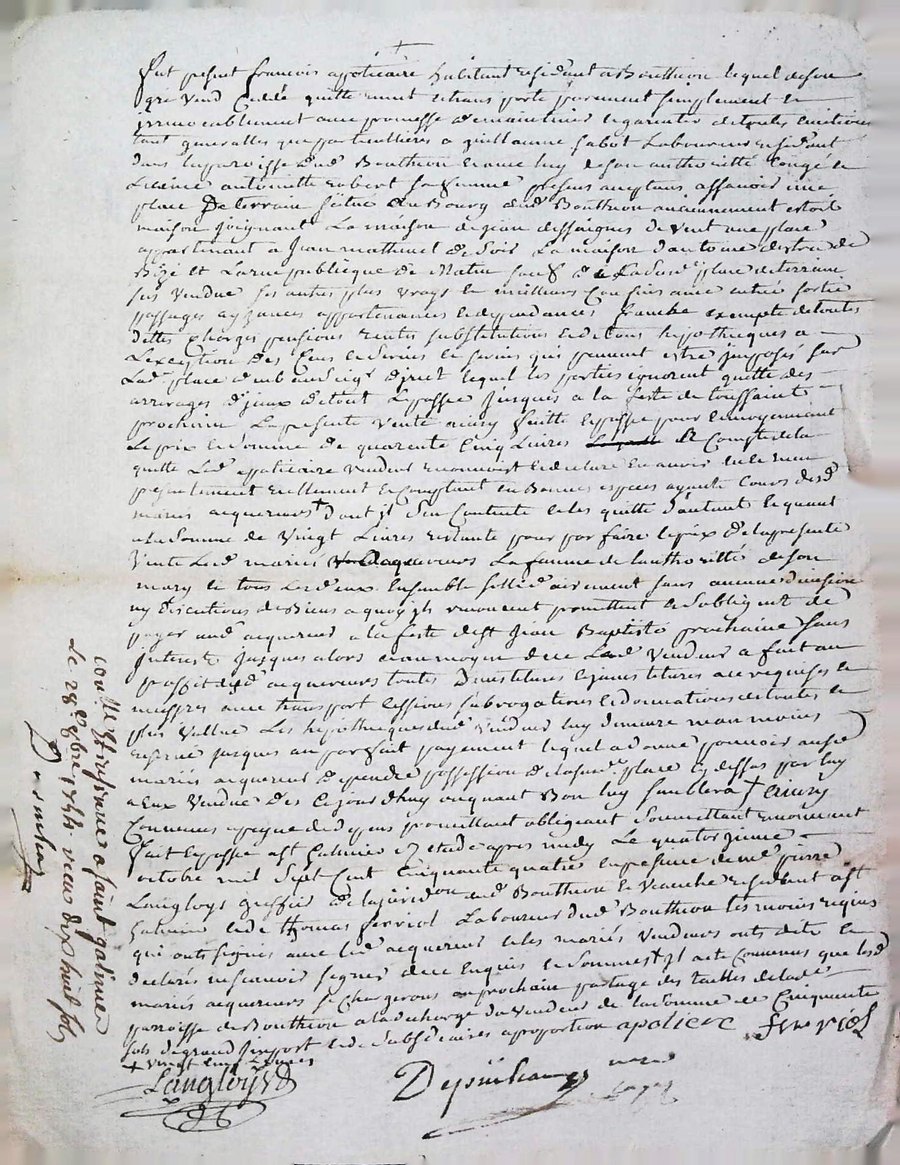 +
fut présent francois apoticaire habitant residant a Bouthéon lequel de son
gré vend cedde quitte remet et transporte purement simplement et
irrevocablement avec promesse de maintenir et garentir de toutes evictions
tant generalles que particullieres a guillaume sabot Laboureur residant
dans la parroisse dud Bouthéon et avec luy de son authorité congé et
Licence antoinette robert sa femme presens acceptans assavoir une
place De terrain scitué au Bourg dud Bouthéon anciennement estoit
maison joignant La maison de jean dessaignes de vent une place
appartenant a jean mathevet de soir La maison d'antoine
Bize et La rue publique de Matin sauf de Lad place de terrain
sus vendue ses autres plus vrays et meilleurs confins avec entrée sortie
passages ayzances appartenances et dependances franche exempte de toutes
dettes charges pensions rentes substitutions et de tous hypotheques a
L'exception des cens et servis qui peuvent estre imposés sur
Lad place lequel les parties ignorent quitte des
arrerages d'iceux de tout le passé jusques a la feste de toussaints
prochaine La presente vente ainsy faitte et passée pour et moyennant
Le prix et somme de quarente cinq Livres a Compte de la
quelle Led appoticaire vendeur reconnoist et declare en avoir receu
presentement reellement et comptant en Bonnes especes ayants Cours desd
mariés acquereurs + dont il s'en contente et les quitte d'autant et quant
a la somme de vingt Livres restante pour parfaire le prix de la presente
vente Lesd mariés La femme de l'authorité de son
mary et tous Les deux Ensemble sollidairement sans aucune division
ny discution de Biens a quoy ils renoncent promettent et s'obligent de
payer aud acquereur a la feste de st Jean Baptiste prochaine sans
Interest jusques alors et au moyen de ce Led vendeur a fait au
proffit desd acquereurs toutes Devestitures et Investitures a ce requises et
necessres avec transport cessions subrogations et donnations de toutes
plus vallue Les hypotheques dud vendeur luy demeure neanmoins
reservé jusques au parfait payement lequel a donné pouvoir ausd
mariés acquereurs de prendre possession de la susd place cy dessus par luy
a Eux vendue des cejourdhuy et quant Bon luy semblera + Ainsy
Convenu promettant obligeant soumettant renoncant
fait et passé a st galmier etude apres midy Le quatorzieme
octobre mil sept cent Cinquante quatre en presence de me pierre
Langloys greffier de la juridon dud Bouthéon et Veauche residant a st
galmier et de thomas ferriol Laboureur dud Bouthéon tesmoins requis
qui onts signés avec led acquereur et les mariés vendeurs onts dit et
declarés ne scavoir signer de ce Enquis et sommés il a esté Convenus que lesd
mariés acquereurs se chargerons au prochain partage des tailles de lade
parroisse de Bouthéon a la decharge du vendeur de la somme de Cinquante
sols de grand Impost et de subsidiaires a proportion apoticere ferriol
+ vingt cinq Livres
Langloys
Depuichaung
conllé et Insinué a saint galmier
Le 28 8bre 1754 receu dix huit sols